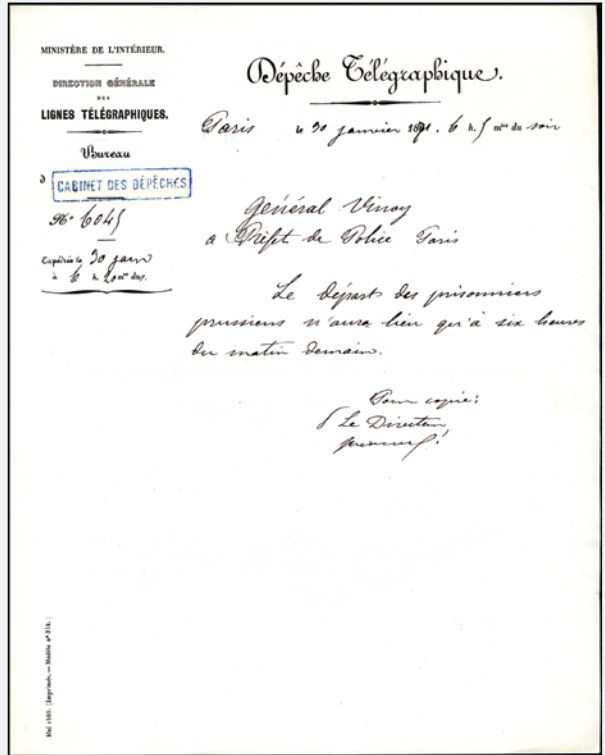 MINISTÈRE DE L'INTÉRIEUR.
DIRECTION GÉNÉRALE
DES
LIGNES TÉLÉGRAPHIQUES.
Bureau
d
CABINET DES DÉPÊCHES
N° 6045
Expédié le 30 janv
à 6 h. 20 mes du s.
Dépêche Télégraphique.
Paris le 30 janvier 1871. 6 h. 5 mes du soir
Général Vinoy
a Préfet de Police Paris
Le départ des prisonniers
prussiens n'aura lieu qu'à six heures
du matin demain.
Pour copie:
Le Directeur
Mai 1868. [Imprimés. — Modèle n°